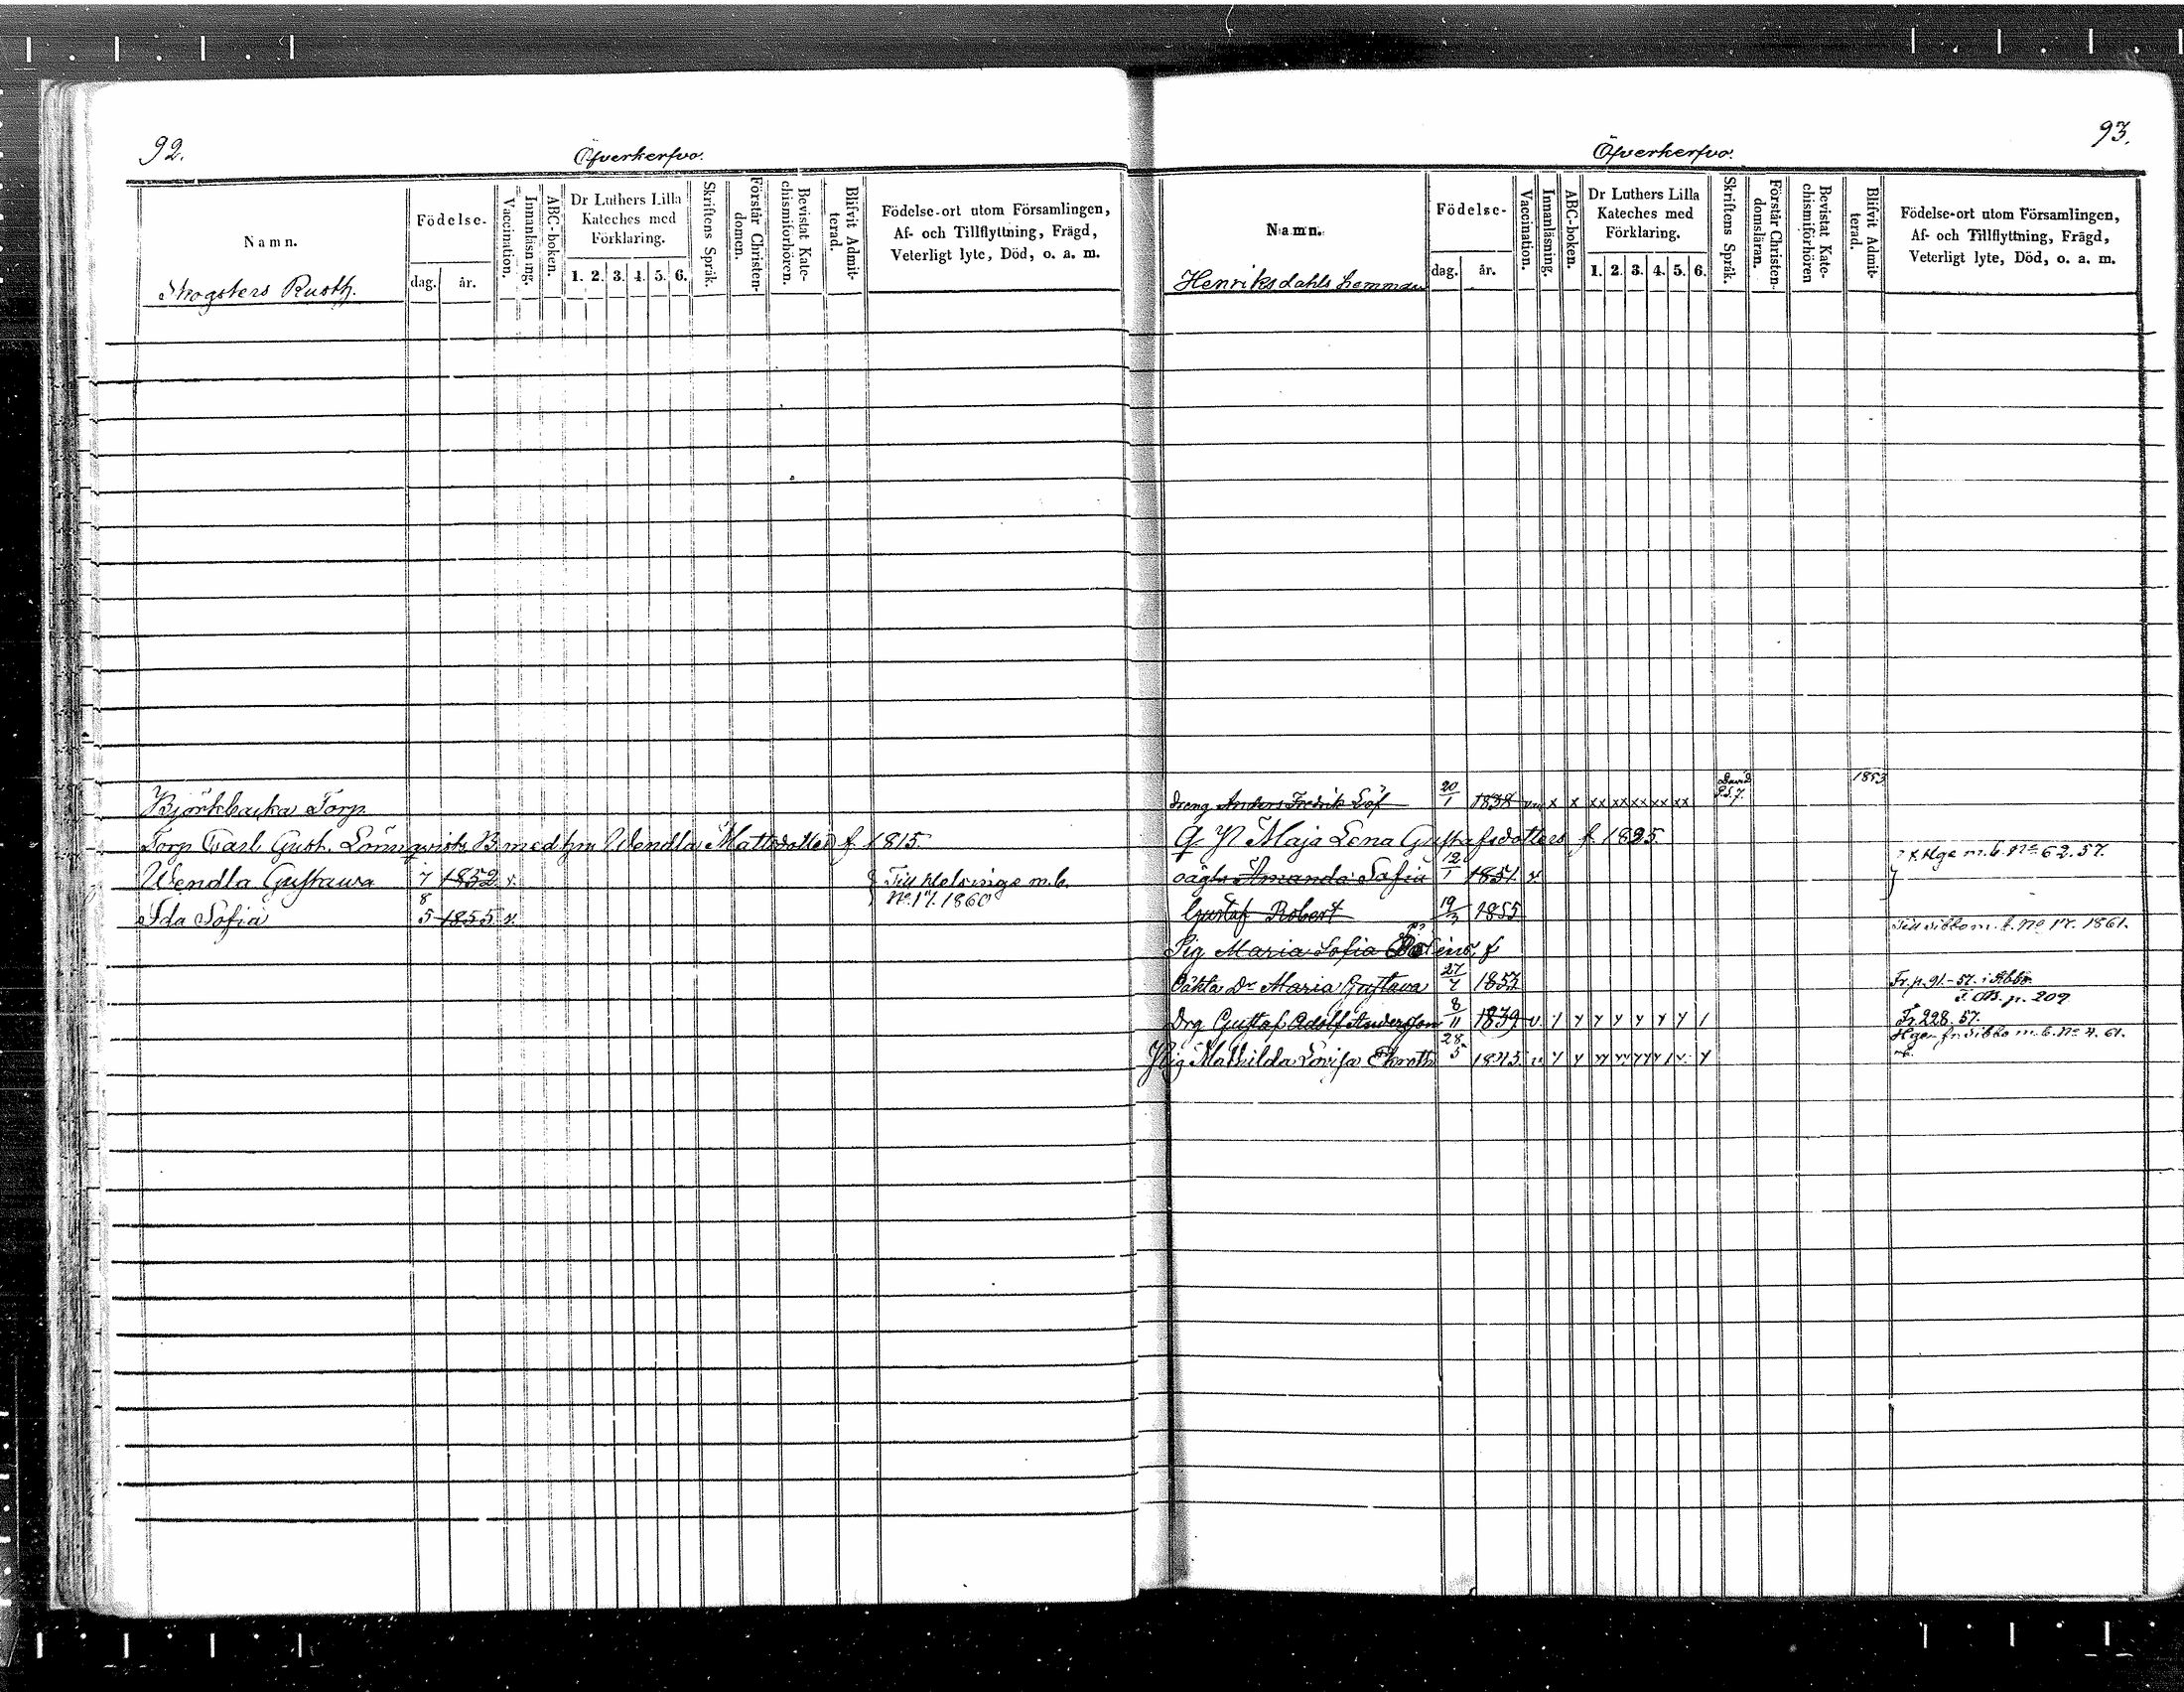 92.
Öfverkerfvo.
Namn.
Skogsters Rusth.
Födelse-
dag. år.
Vaccination.
Innanläsning.
ABC-boken.
Dr Luthers Lilla
Kateches med
Förklaring.
1. 2. 3. 4. 5. 6.
Skriftens Språk.
Förstår Christen-
domen.
Bevistat Kate-
chismiförhören.
Blifvit Admit-
terad.
Födelse-ort utom Församlingen,
Af- och Tillflyttning, Frägd,
Veterligt lyte, Död, o. a. m.
Björkbacka Torp
Torp Carl Gust. Lönnqvists B med hu Wendla Mattsdotter f. 1815.
Wendla Gustawa 7 1852 v. Till Helsinge m.b.
No. 17. 1860
Ida Sofia 8/5 1855 v.
93.
Öfverkerfvo.
Namn.
Henriksdahls hemman
Födelse-
dag. år.
Vaccination.
Innanläsning.
ABC-boken.
Dr Luthers Lilla
Kateches med
Förklaring.
1. 2. 3. 4. 5. 6.
Skriftens Språk.
Förstår Christen-
domsläran.
Bevistat Kate-
chismiförhören
Blifvit Admit-
terad.
Födelse-ort utom Församlingen,
Af- och Tillflyttning, Frägd,
Veterligt lyte, Död, o. a. m.
dreng Anders Fredrik Löf 20/1 1838 x x xx xx xx xx xx David Ps. 7. 1853
Q P Maja Lena Gustafsdotters f. 1825.
oägta Amanda Sofia 12/1 1851. v Hge m.b. No 62. 57.
Gustaf Robert 19/3 1855
Till Sibbo m.b. No 17. 1861.
Pig Maria Sofia f
Oäkta Dr Maria Gustava 27/7 1857 Fr. p. 91.-57. i Sibbo
p. 209
Drg Gustaf Adolf Andersson 8/11 1839 v. y y y y y y y / Fr. 228. 57.
Pig Mathilda Lovisa Ekroth 28/5 1843. v. y y yy yy yy y v. y Hgen fr. Sibbo m.b. No 4. 61.